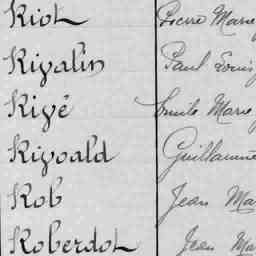 Riot Pierre Marie
Rivalin Paul Louis
Rivé Emile Marie
Rivoald Guillaume
Rob Jean Ma
Roberdot Jean Ma